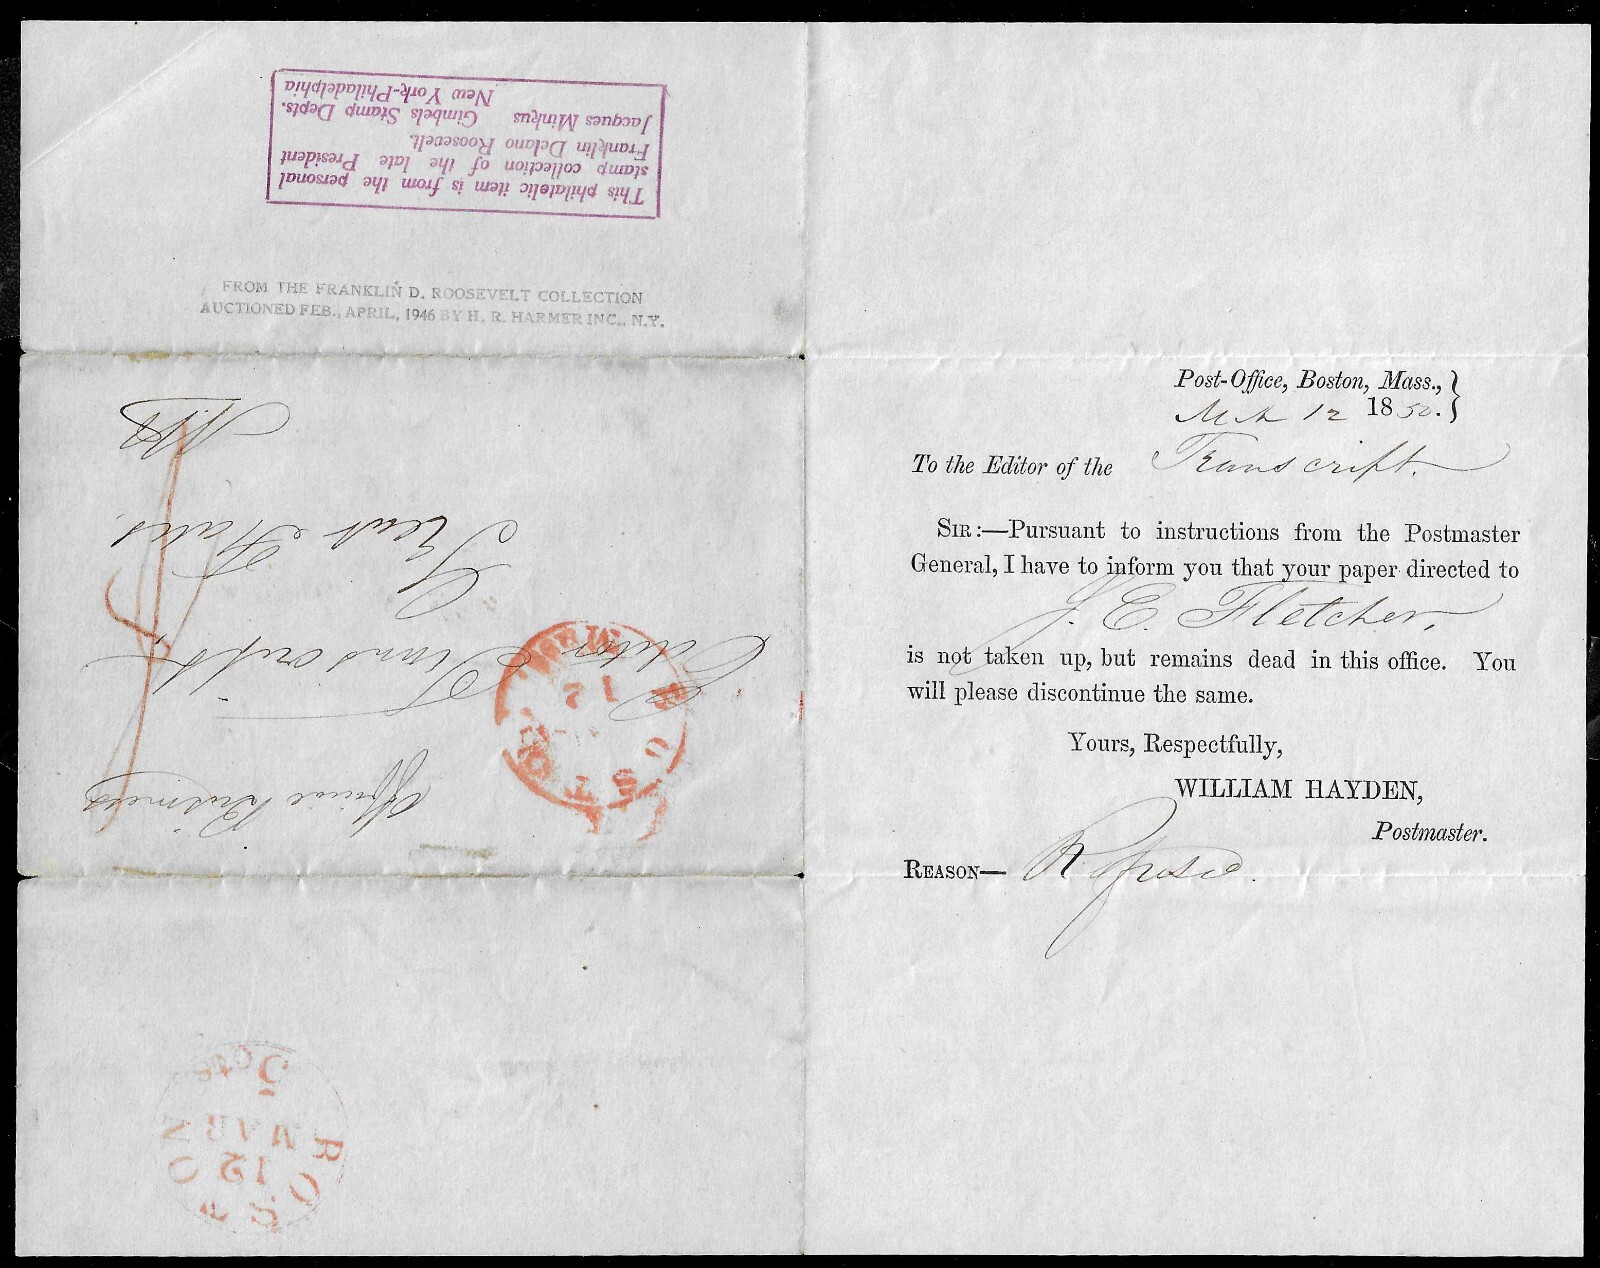 This philatelic item is from the personal
stamp collection of the late President
Franklin Delano Roosevelt.
Jacques Minkus Gimbels Stamp Depts.
New York-Philadelphia
FROM THE FRANKLIN D. ROOSEVELT COLLECTION
AUCTIONED FEB., APRIL, 1946 BY H. R. HARMER INC., N.Y.
Official Business
Editor Transcript
Great Falls
N.H.
BOSTON
12
BOSTON
12
MAR
5 cts
Post-Office, Boston, Mass.,
12 1850.
To the Editor of the Transcript.
SIR:—Pursuant to instructions from the Postmaster
General, I have to inform you that your paper directed to
J. E. Fletcher,
is not taken up, but remains dead in this office. You
will please discontinue the same.
Yours, Respectfully,
WILLIAM HAYDEN,
Postmaster.
REASON— Refused.